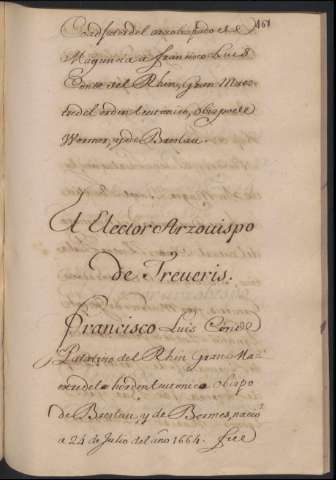 461
Coadjutor del arzobispado de
Maguncia a francisco Luis
Conde del Rhin, Gran Maes
tre del orden teutonico, obispo de
Wormes, y de Breslau.
El Elector Arzouispo
de Treueris.
Francisco Luis Conde
Palatino del Rhin Gran Ma
estre de la horden teutonica obispo
de Breslau, y de Bormes, nacio
a 24 de Julio del año 1664. fue